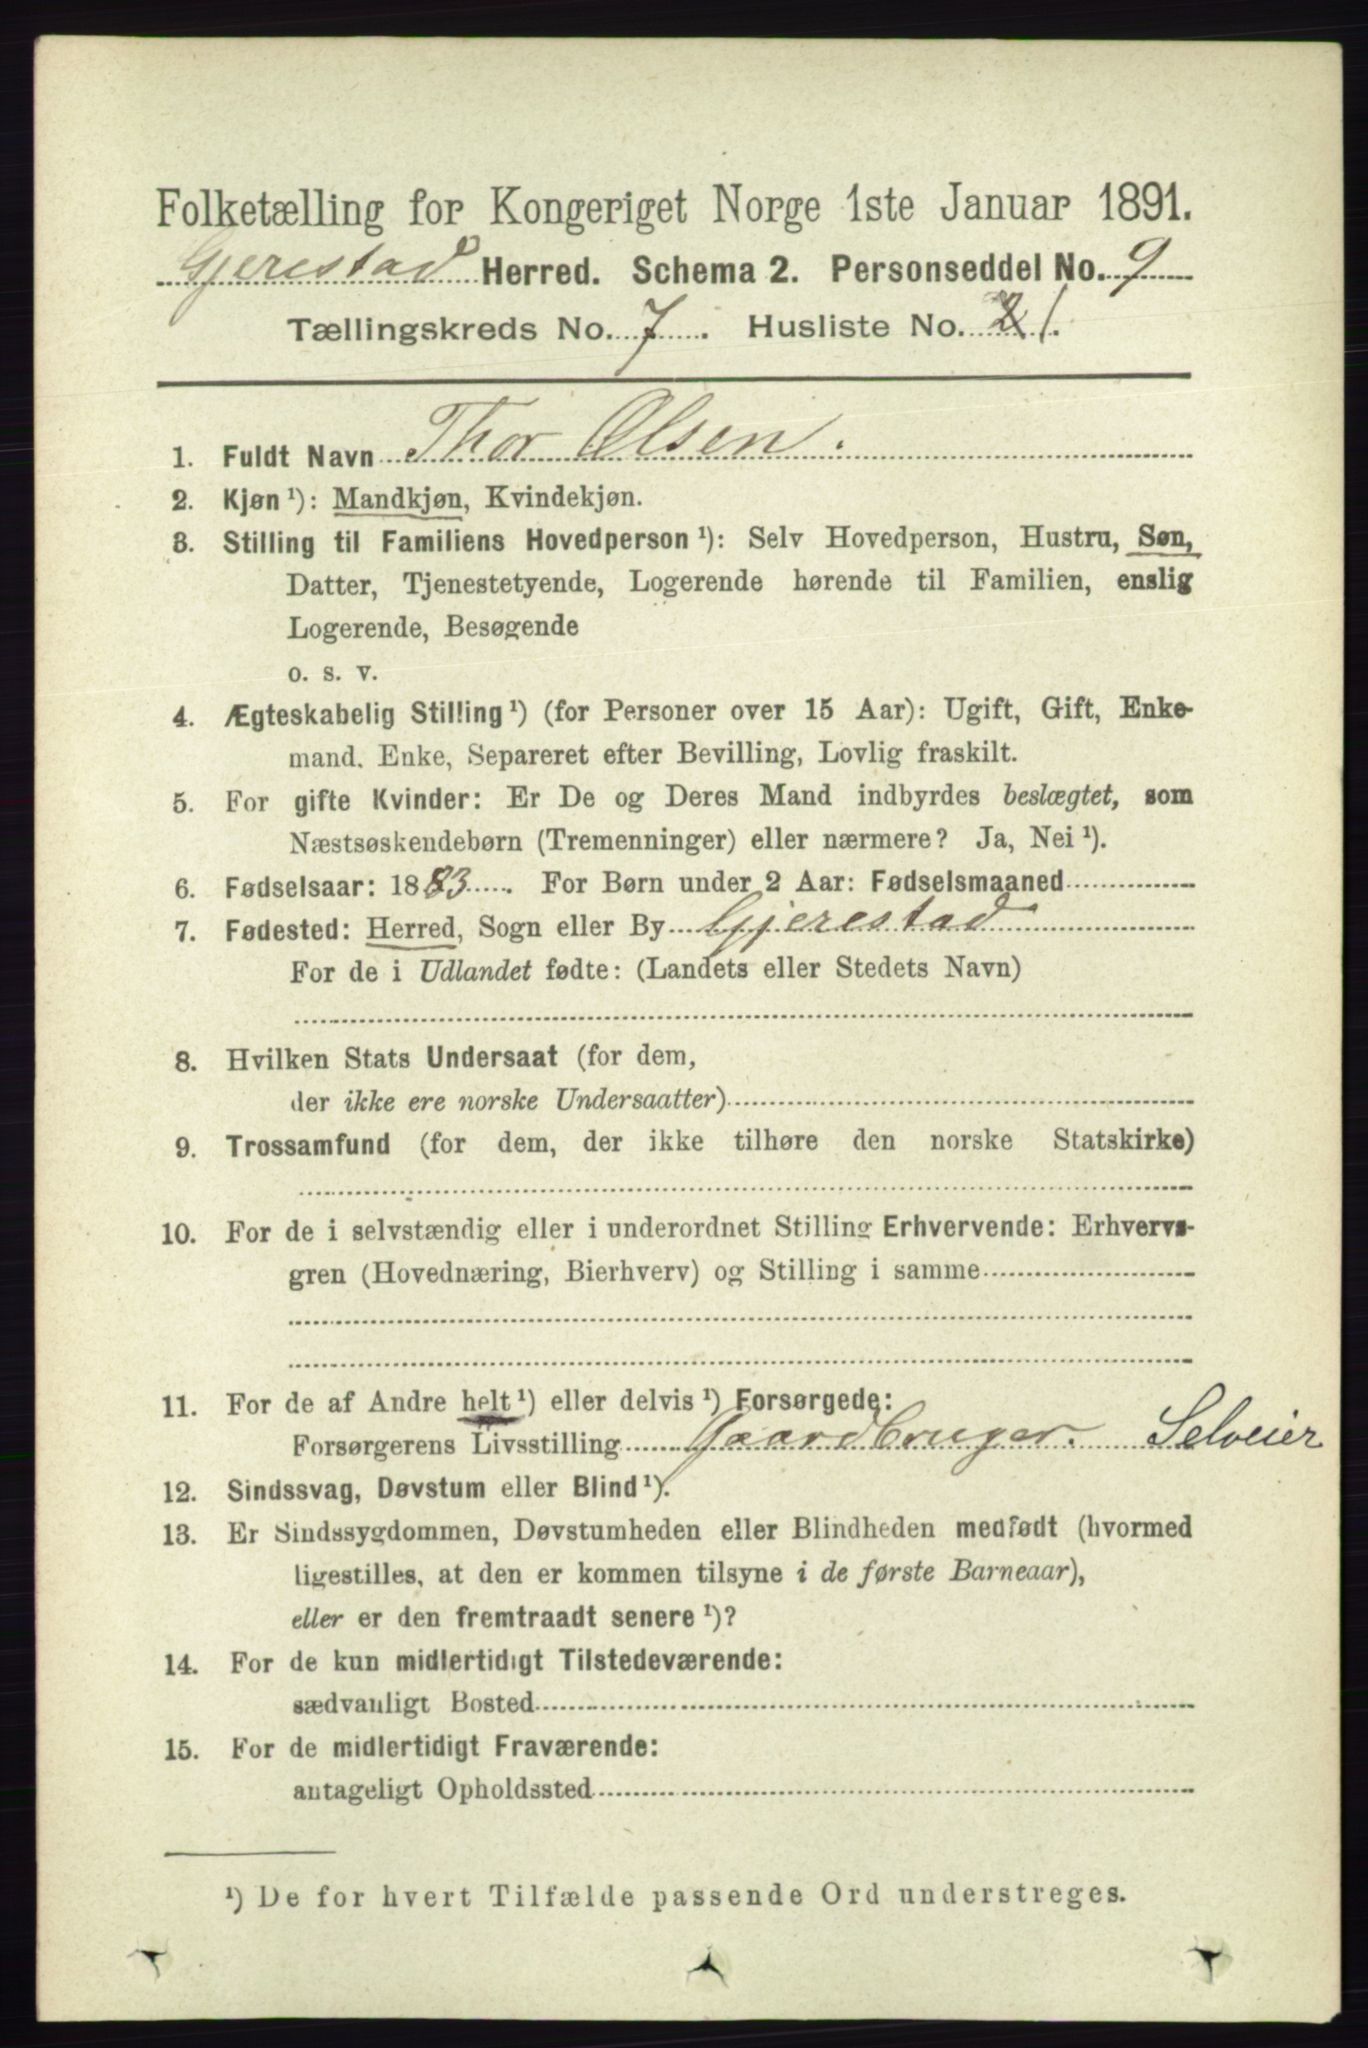 Folketælling for Kongeriget Norge 1ste Januar 1891.
Gjerestad Herred. Schema 2. Personseddel No. 9
Tællingskreds No. 7. Husliste No. 1.
1. Fuldt Navn Thor Olsen.
2. Kjøn ¹): Mandkjøn, Kvindekjøn.
3. Stilling til Familiens Hovedperson ¹): Selv Hovedperson, Hustru, Søn,
Datter, Tjenestetyende, Logerende hørende til Familien, enslig
Logerende, Besøgende
o. s. v.
4. Ægteskabelig Stilling ¹) (for Personer over 15 Aar): Ugift, Gift, Enke-
mand. Enke, Separeret efter Bevilling, Lovlig fraskilt.
5. For gifte Kvinder: Er De og Deres Mand indbyrdes beslægtet, som
Næstsøskendebørn (Tremenninger) eller nærmere? Ja, Nei ¹).
6. Fødselsaar: 1883. For Børn under 2 Aar: Fødselsmaaned
7. Fødested: Herred, Sogn eller By Gjerestad
For de i Udlandet fødte: (Landets eller Stedets Navn)
8. Hvilken Stats Undersaat (for dem,
der ikke ere norske Undersaatter)
9. Trossamfund (for dem, der ikke tilhøre den norske Statskirke)
10. For de i selvstændig eller i underordnet Stilling Erhvervende: Erhvervs-
gren (Hovednæring, Bierhverv) og Stilling i samme
11. For de af Andre helt ¹) eller delvis ¹) Forsørgede:
Forsørgerens Livsstilling Gaardbruger. Selveier
12. Sindssvag, Døvstum eller Blind ¹).
13. Er Sindssygdommen, Døvstumheden eller Blindheden medfødt (hvormed
ligestilles, at den er kommen tilsyne i de første Barneaar),
eller er den fremtraadt senere ¹)?
14. For de kun midlertidigt Tilstedeværende:
sædvanligt Bosted
15. For de midlertidigt Fraværende:
antageligt Opholdssted
¹) De for hvert Tilfælde passende Ord understreges.